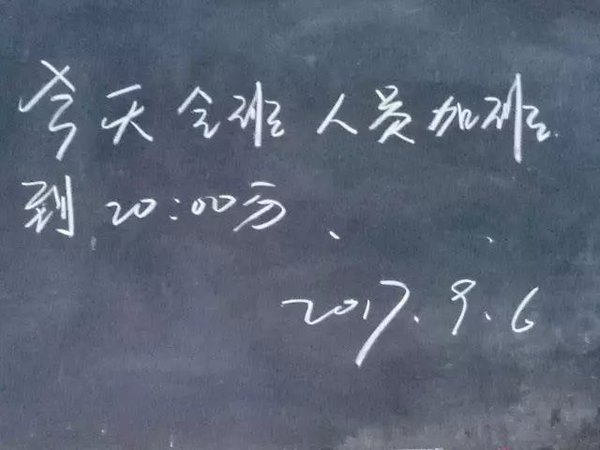 今天全班人员加班
到20:00分
2017.9.6